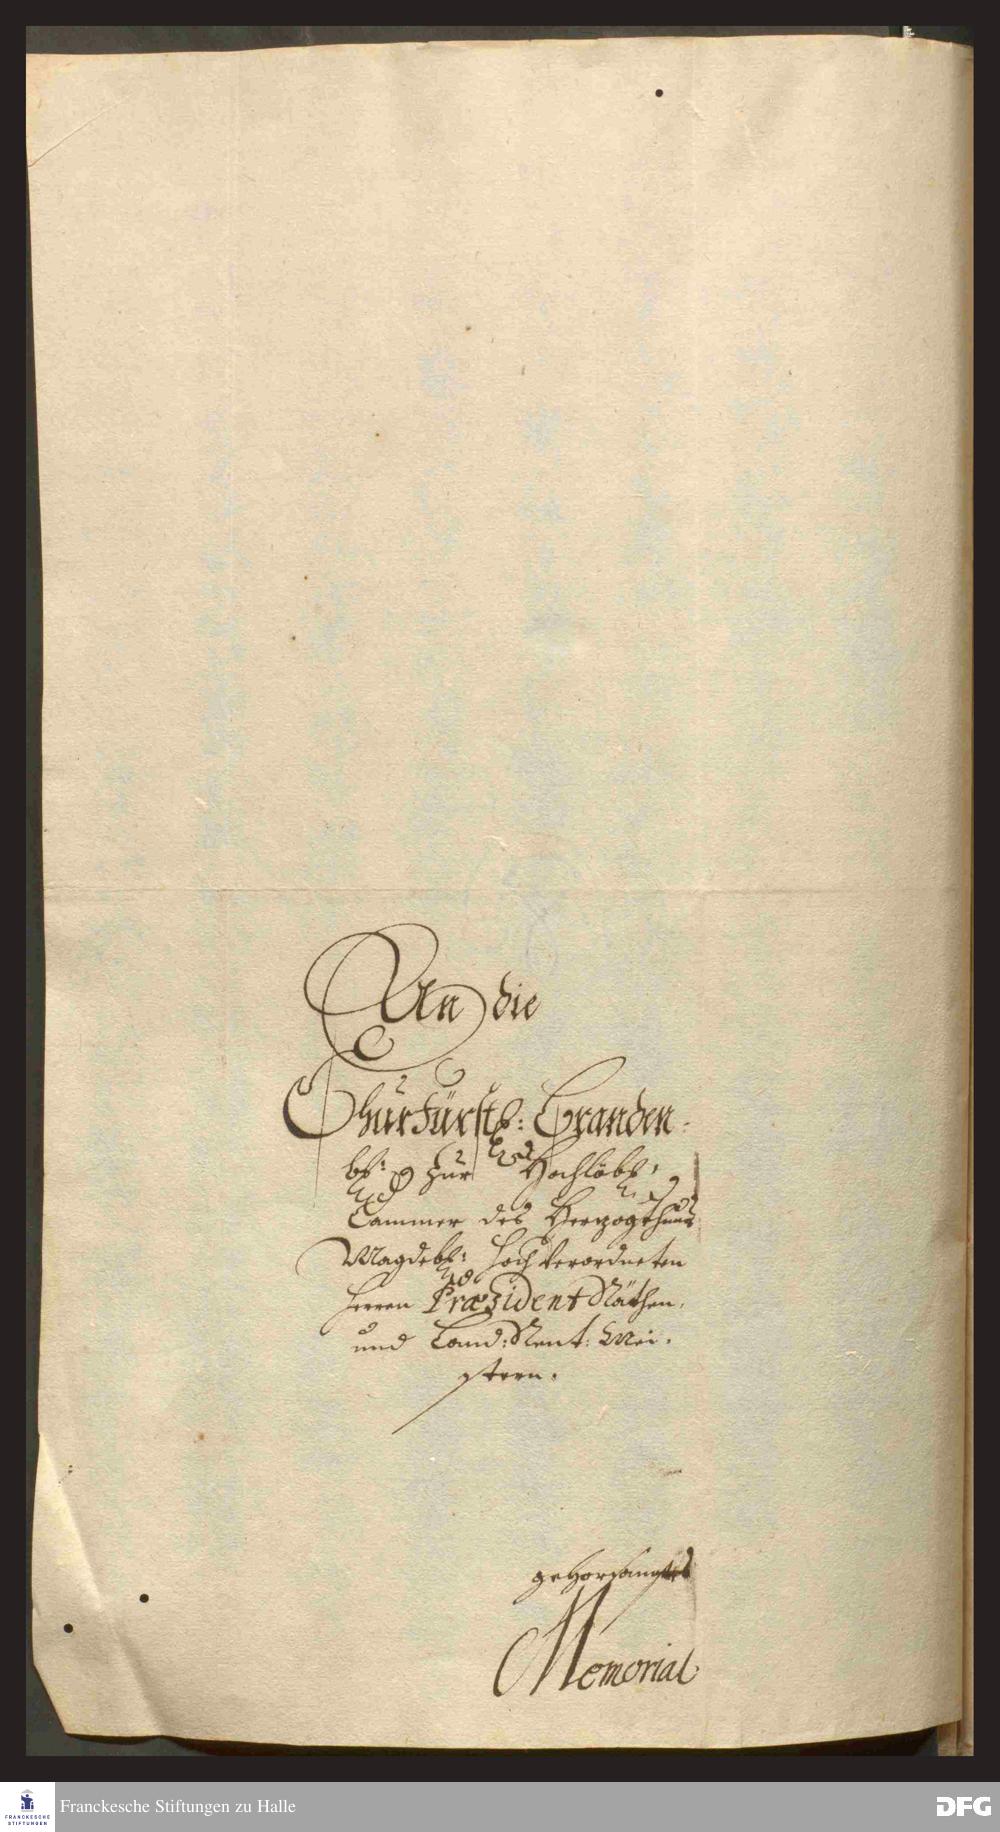 An die
Churfürstl: Branden-
bl: zur Hochlöbl:
Cammer des Herzogthums
Magdebl: hoch verordneten
Herren Præsident Räthen,
und Land: Rent: Mei-
stern.
gehorsambstes
Memorial
Franckesche Stiftungen zu Halle
FRANCKESCHE
STIFTUNGEN
DFG